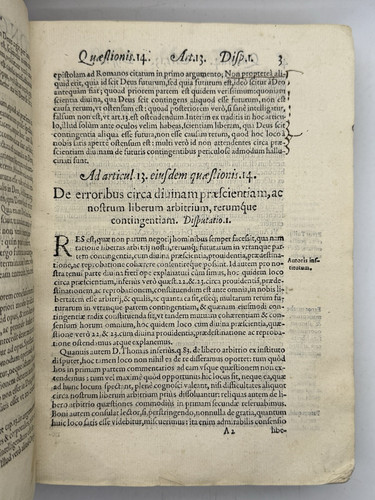 Quæstionis.14. Art.13. Disp.1. 3
epistolam ad Romanos citatum in primo argumento, Non propterea ali-
quid erit, quia id scit Deus futurum, sed quia futurum est, ideo scitur à Deo
antequam fiat; quo priorem partem est quidem verissimum quoniam
scientia divina, qua Deus scit contingens aliquod esse futurum, non est
causa quod id sit futurum,
falsum non est, vt art.13. est ostendendum. Interim ex tradita in hoc articu-
lo, illud solum ante oculos velim habeas, scientiam liberam, qua Deus scit
contingentia aliqua esse futura, non esse causam rerum, quod hoc loco à
nobis partim est ostensum: multi verò id non attendentes circa præ
scientiam de futuris contingentibus periculosè admodum halluci-
nati sunt.
Ad articul.13. eiusdem quæstionis.14.
De erroribus circa diuinam præscientiam, ac
nostrum liberum arbitrium, rerumque
contingentiam. Disputatio.1.
RES est, quæ non parum negotij hominibus semper facessit, qua nam
ratione libertas arbitrij nostri, rerumq; futurarum in vtramque partem
contingentia, cum diuina præscientia, prouidentia, prædestina-
tione, ac reprobatione cohærere consentireque possint. Id autem pro nostra
tenui parte diuina freti ope explanaturi cùm simus, hoc quidem loco
circa præscientiam, inferiùs verò quæst.22.& 23. circa prouidentiam, præde-
stinationem, ac reprobationem, ostendendum est ante omnia, in nobis li-
bertatem esse arbitrij, & qualis, ac quanta ea sit,
turarum esse in vtramque partem contingentiam, &
radice constituenda sit, vt tandem mutuam cohærentiam &
consensum horum omnium, hoc quidem loco cum diuina præscientia,
verò q.22.& 23. cum diuina prouidentia, prædestinatione, ac reprobatione
demonstremus.
Autoris ins-
titutum,
Quanuis autem D. Thomas inferiùs q.83. de libero arbitrio ex instituto
disputet, hoc tamen loco non nihil et de re differamus oportet: tum quòd
hos in primam partem commentarios ad eam vsque quæstionem non ex-
tendemus; tum vel maximè quòd opportunus hic locus sit, neque ea, quæ
ad hunc locum spectant, plenè cognosci valeant, nisi difficultates aliquot
circa liberum arbitrium priùs dissoluantur: reliqua autem de
libero arbitrio quæstiones commodiùs in primam secundæ reseruabimus.
Boni autem consulat lector, si, perstringendo, nonnulla de gratia, quantum
huic loco satis esse videbitur, miscuerimus,
A 2 libe-